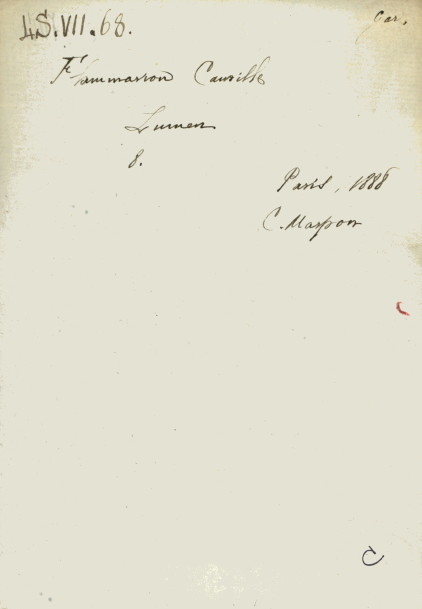 4S.VII.68.
Car.
Flammarion Camille
Lumen
8.
Paris, 1888
C. Marpon
C